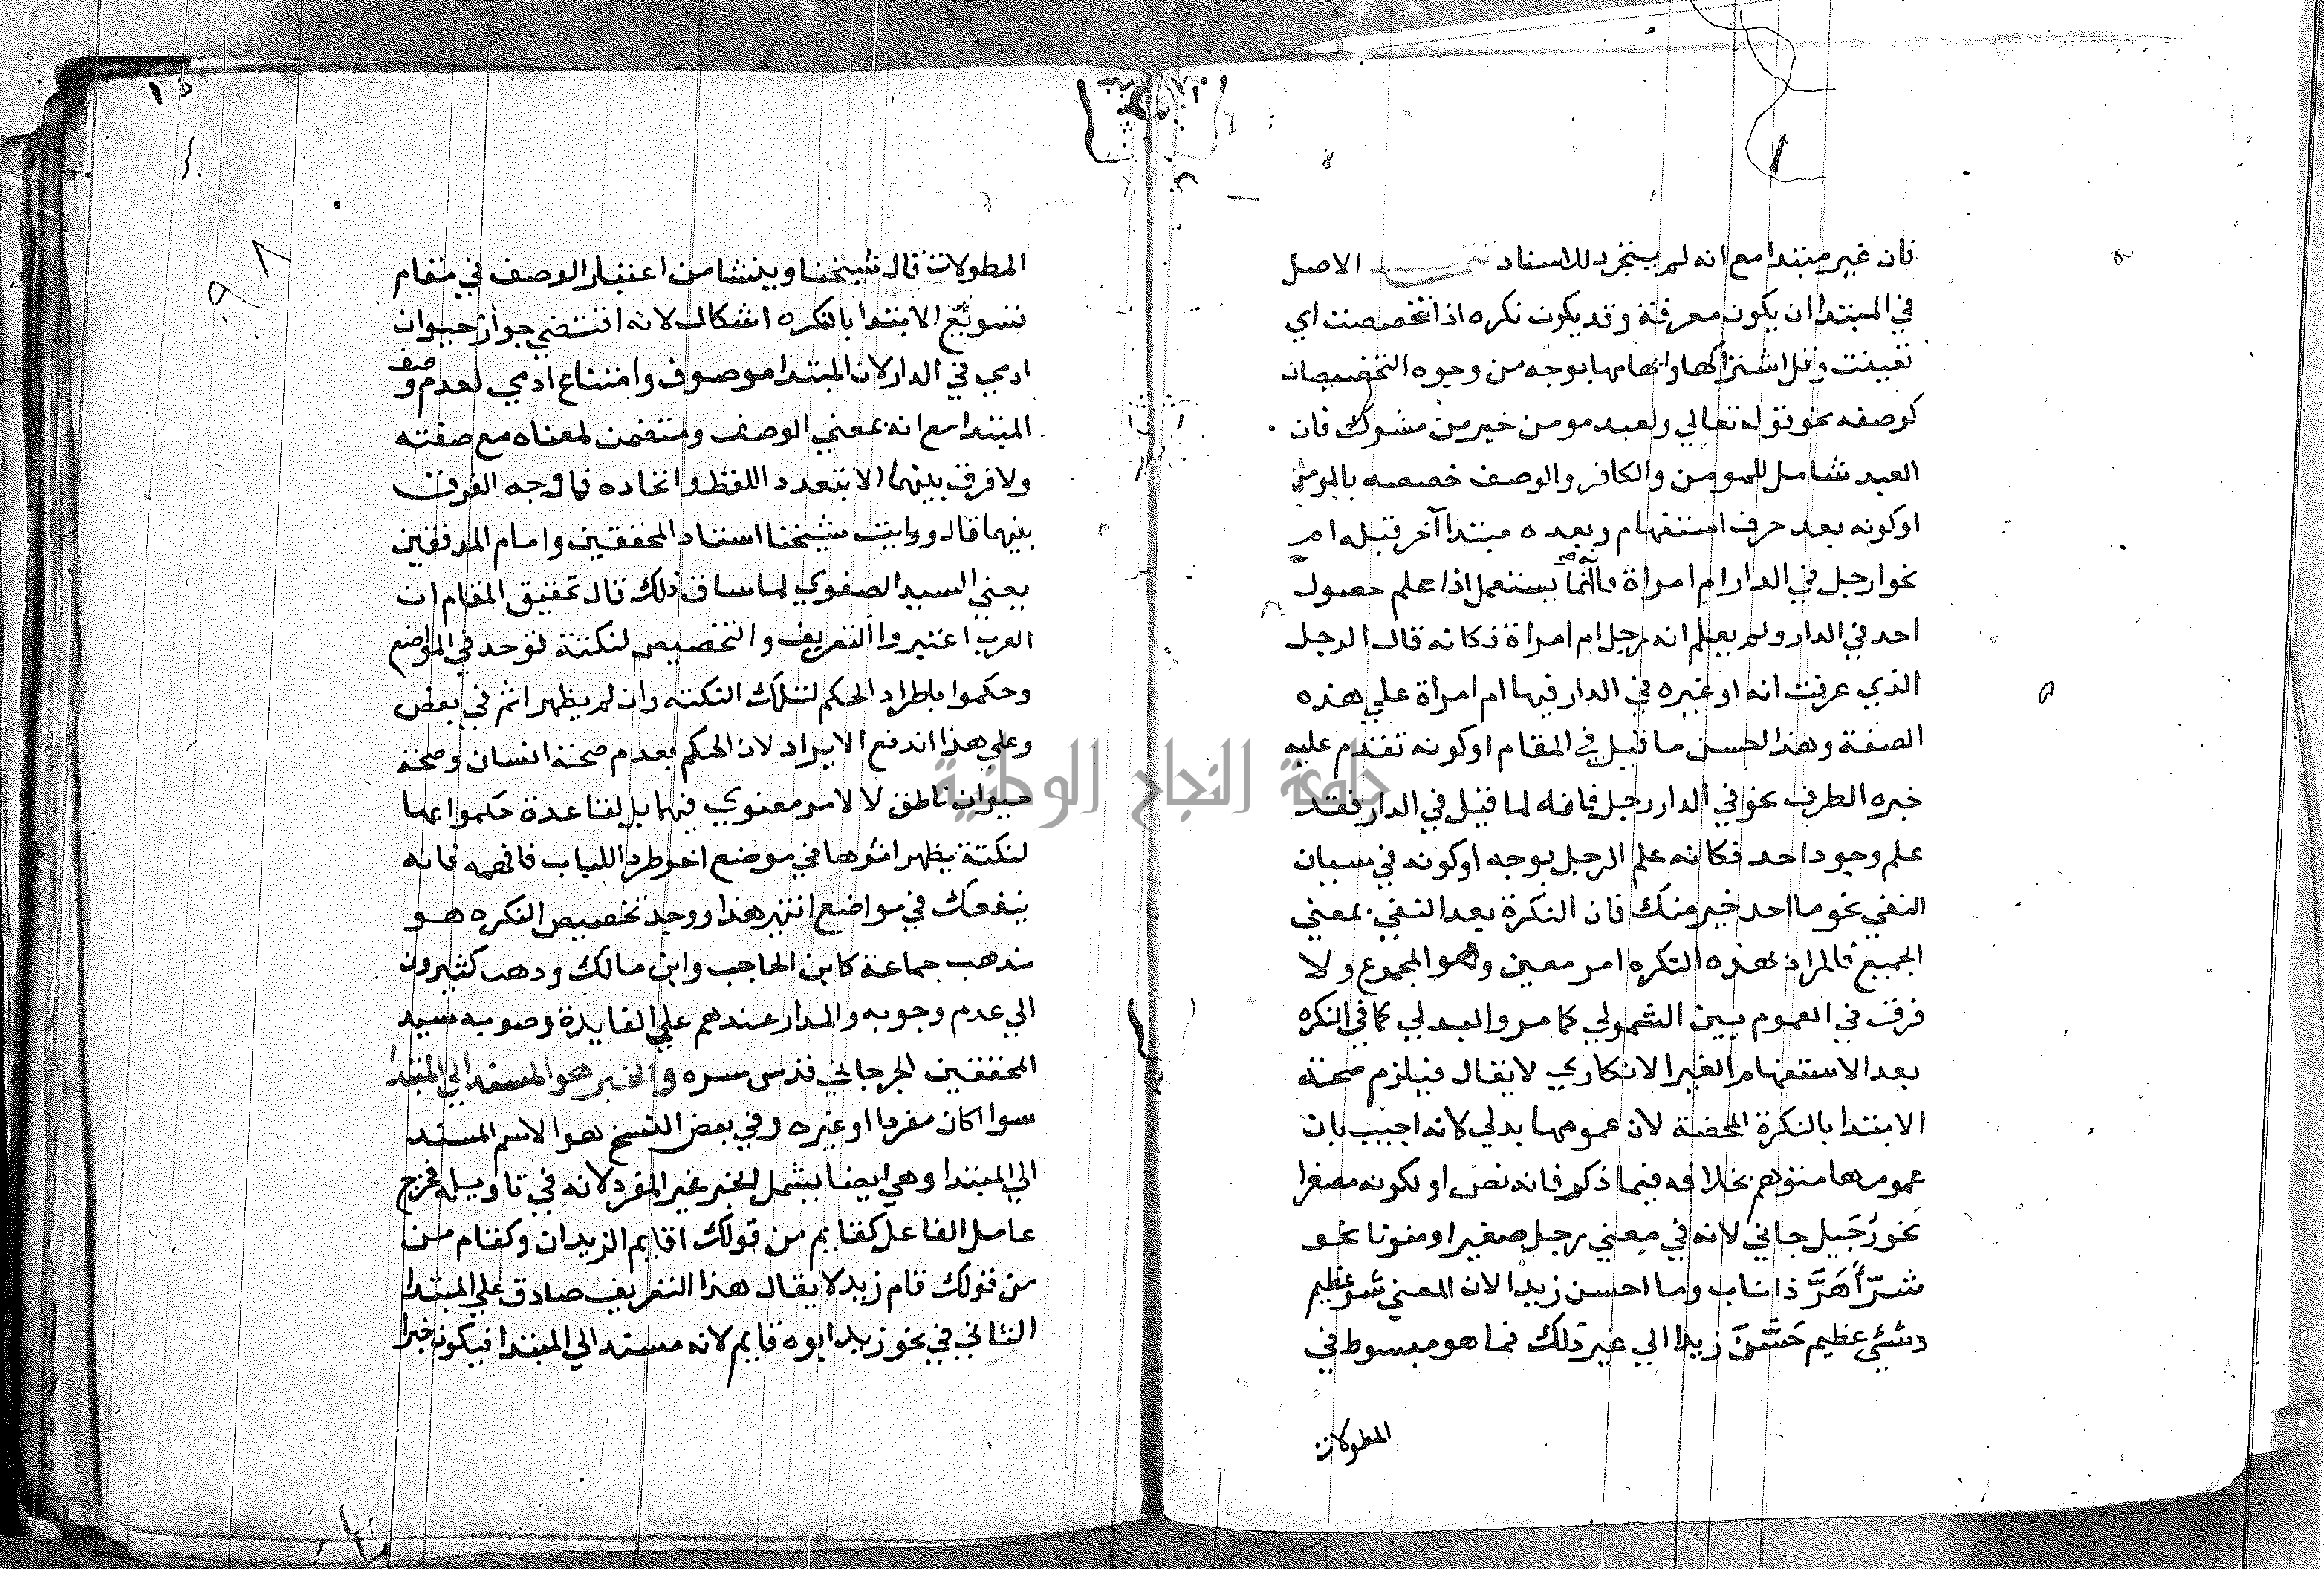 فان غير مبتدا مع انه لم يتجرد للاسناد الاصل
في المبتدا ان يكون معرفة وقد يكون نكره اذا تخصصت اي
تعينت وقل اشتراكها وابهامها بوجه من وجوه التخصيصات
كوصفه نحو قوله تعالي ولعبد مومن خير من مشرك فان
العبد شامل للمومن والكافر والوصف خصصه بالمومن
اوكونه بعد حرف استفهام وبعده مبتدا آخر قبله ام
نحو ارجل في الدار ام امراة يستعمل اذا علم حصول
احد في الدار ولم يعلم انه رجل ام امراة فكانه قال الرجل
الذي عرفت انه اوغيره في الدار فيها ام امراة علي هذه
الصفة وهذا احسن ما قيل في المقام اوكونه تقدم عليه
خبره الظرف نحو في الدار رجل فانه لما قيل في الدار فقد
علم وجود احد فكانه علم الرجل بوجه اوكونه في سياق
النفي نحو ما احد خير منك فان النكرة بعد النفي بمعني
الجميع فالمراد بهذه النكره امر معين وهو المجموع ولا
فرق في العموم بين الشمولي كما مر والبدلي كما في النكره
بعد الاستفهام الغير الانكاري لا يقال فيلزم صحة
الابتدا بالنكرة المحضة لان عمومها بدلي لانه اجيب بان
عمومها متوهم بخلافه فيما ذكر فانه نص اولكونه مصغرا
نحو رُجَيل جاني لانه في معني رجل صغير او منونا نحو
شرّ أهَرَّ ذا ناب وما احسن زيدا لان المعني شر عظيم
وشئي عظيم حَسَّنَ زيدا الي غير ذلك فما هو مبسوط في
المطولات
المطولات قال شيخنا وينشا من اعتبار الوصف في مقام
تسويغ الابتدا بالنكره اشكال لانه اقتضي جواز حيوان
ادمي في الدار لان المبتدا موصوف وامتناع ادمي لعدم وصف
المبتدا مع انه بمعني الوصف ومتضمن لمعناه مع صفته
ولا فرق بينهما الا بتعدد اللفظ واتحاده فما وجه الفرق
بينهما قال ورايت شيخنا استاد المحققين وامام المدققين
يعني السيد الصفوي لما ساق ذلك قال تحقيق المقام ان
العرب اعتبروا التعريف والتخصيص لنكتة توجد في المواضع
وحكموا باطراد الحكم لتلك النكته وان لم يظهر اثم في بعض
وعلي هذا اندفع الايراد لان الحكم بعدم صحة انسان وصحة
حيوان ناطق لا لامر معنوي فيهما بل لقاعدة حكموا بها
لنكتة يظهر اثرها في موضع اخر طردا للباب فافهمه فانه
ينفعك في مواضع انتهي هذا ووجد تخصيص النكره هو
مذهب جماعة كابن الحاجب وابن مالك وذهب كثيرون
الي عدم وجوبه والمدار عندهم علي الفايدة وصوبه سيد
المحققين الجرجاني قدس سره والخبر هو المسند الي المبتدا
سوا اكان مفردا اوغيره وفي بعض النسخ هو الاسم المسند
الي المبتدا وهي ايضا يشمل الخبر غير المفرد لانه في تاويله فخرج
عامل الفاعل كقايم من قولك اقايم الزيدان وكقام من
من قولك قام زيد لا يقال هذا التعريف صادق علي المبتدا
الثاني في نحو زيد ابوه قايم لانه مسند الي المبتدا فيكون خبرا